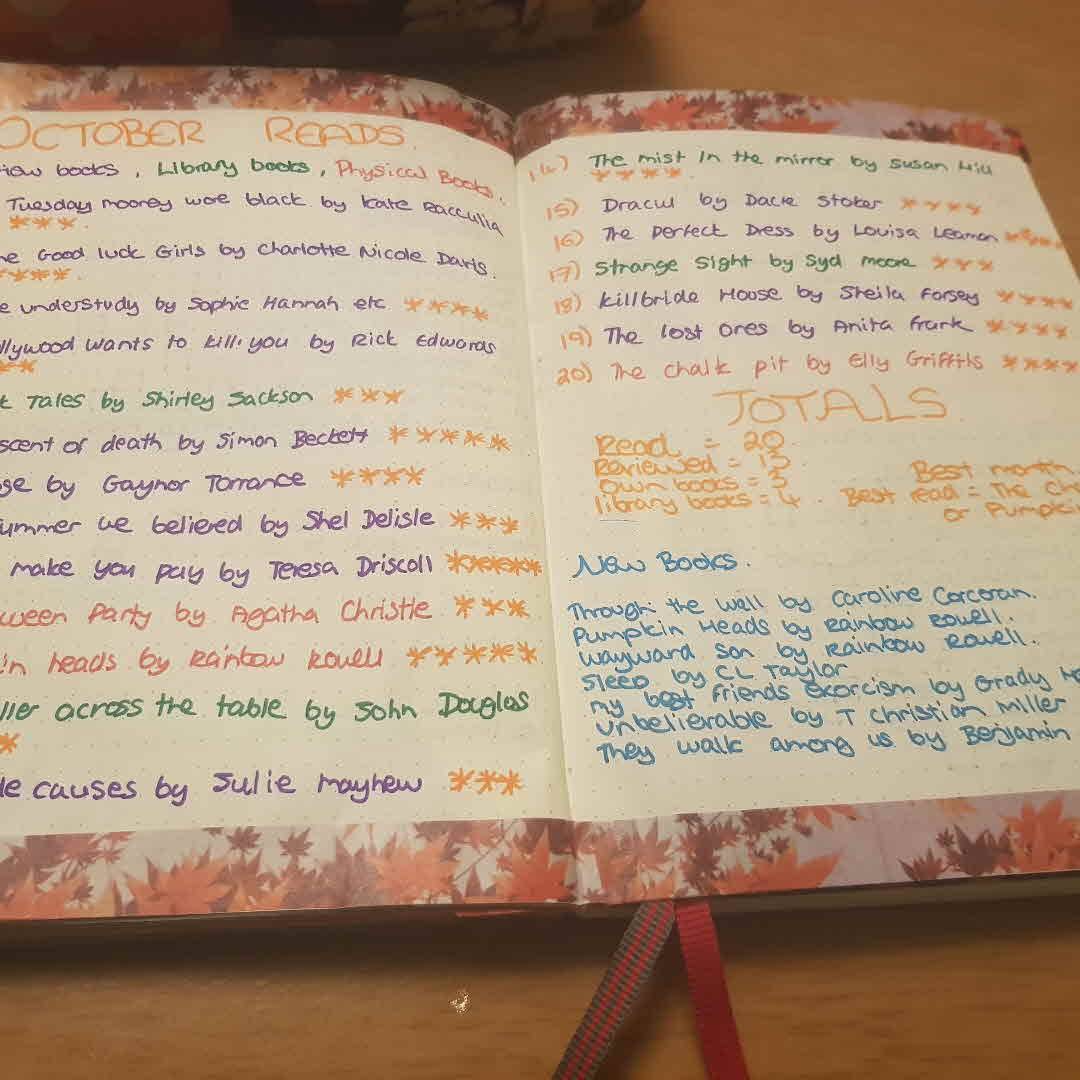 OCTOBER READS
iew books, Library books, Physical Books.
Tuesday mooney wore black by Kate Racculia
***.
he Good luck Girls by Charlotte Nicole Davis.
****.
e understudy by Sophie Hannah etc ****
llywood wants to kill you by Rick Edwards
**
k Tales by Shirley Jackson ***
scent of death by Simon Beckett *****
ge by Gaynor Torrance ****
ummer we believed by Shel Delisle ***
make you pay by Teresa Driscoll *****
ween Party by Agatha Christie ***
in heads by Rainbow Rowell *****
ller across the table by John Douglas
*
le causes by Julie mayhew ***
14) The mist in the mirror by Susan Hill
****.
15) Dracul by Dacre Stoker ****
16) The Perfect Dress by Louisa Leaman
17) Strange Sight by Syd moore ***
18) Killbride House by Sheila Forsey ****
19) The lost ones by Anita Frank ****
20) The chalk pit by Elly Griffiths ****
TOTALS
Read = 20.
Reviewed = 13
Own books = 3
library books = 4.
Best month
Best read = The Ch
or Pumpkin
New Books.
Through the wall by Caroline Corcoran.
Pumpkin Heads by Rainbow Rowell.
wayward Son by Rainbow Rowell.
Sleep by CL Taylor
my best friends exorcism by Grady He
unbelievable by T Christian miller
They walk among us by Benjamin